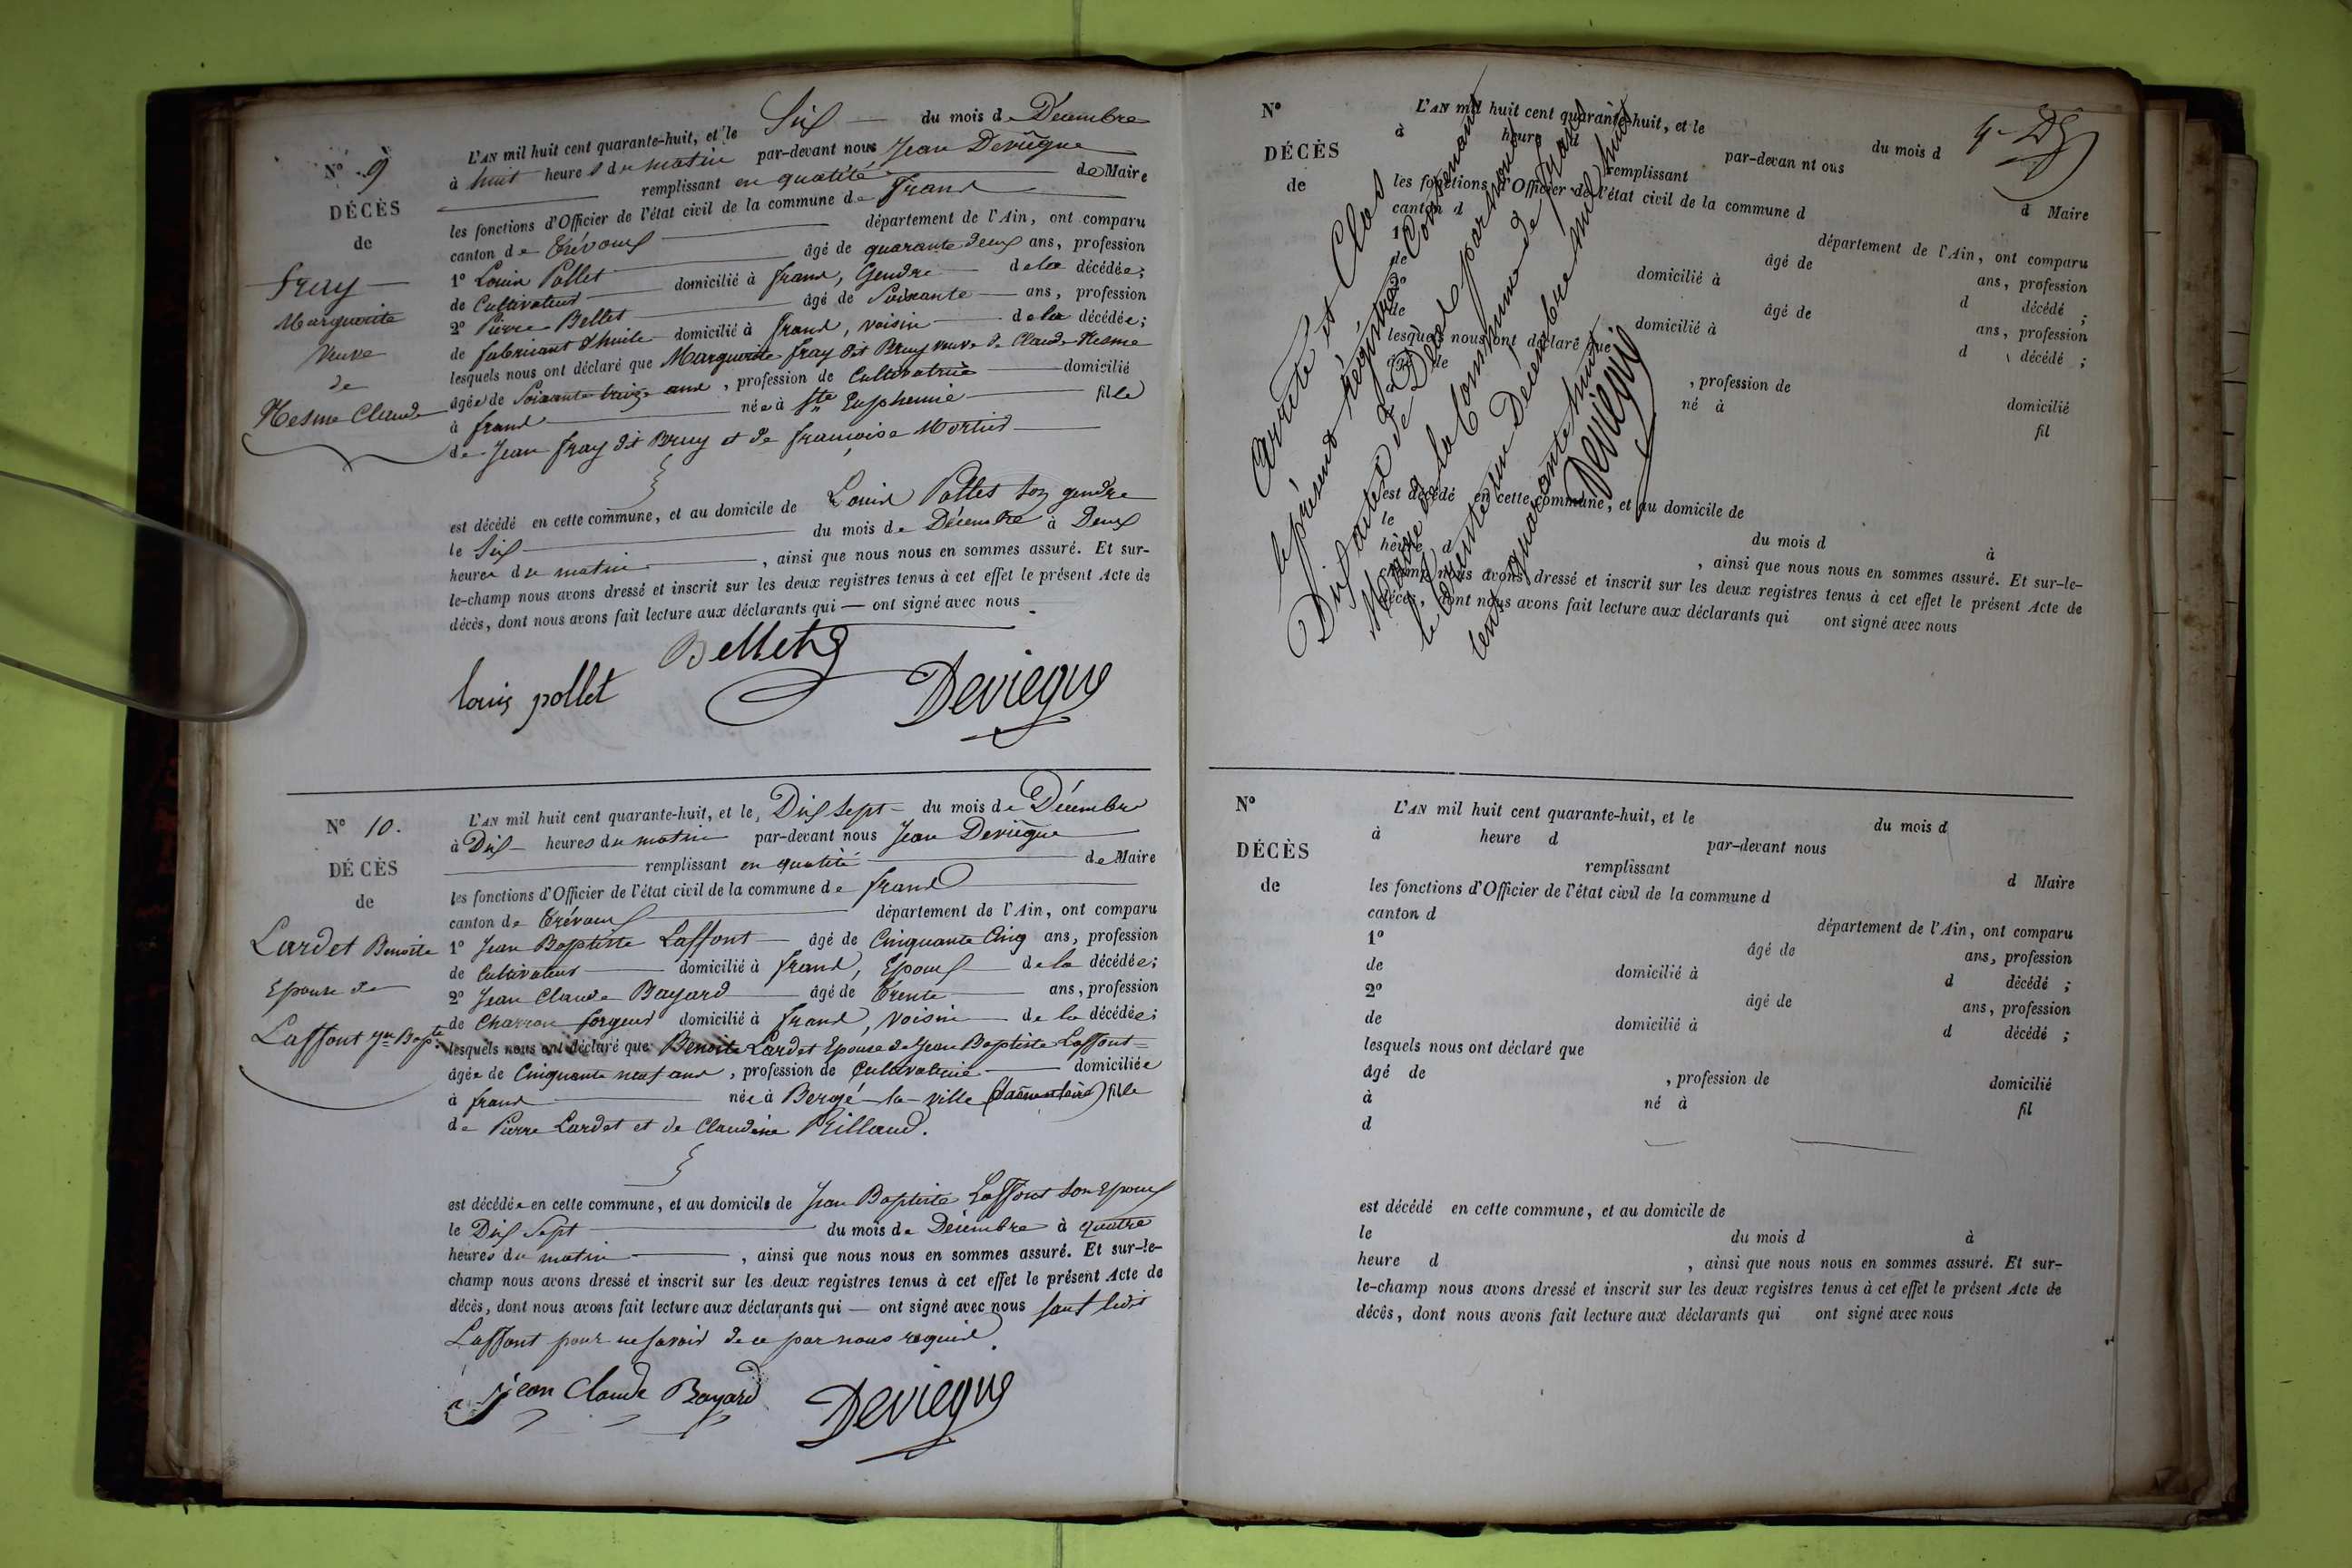 N° 9
DÉCÈS
de
fray
Marguerite
Veuve
de
Hesme Claude
L'AN mil huit cent quarante-huit, et le Six du mois de Décembre
à huit heures du matin par-devant nous Jean Deviègue
remplissant en qualité de Maire
les fonctions d'Officier de l'état civil de la commune de frans
canton de Trévoux département de l'Ain, ont comparu
1° Louis Pollet âgé de quarante deux ans, profession
de Cultivateur domicilié à frans, Gendre de la décédée;
2° Pierre Bellet âgé de Soixante ans, profession
de fabricant d'huile domicilié à frans, voisin de la décédée;
lesquels nous ont déclaré que Marguerite fray dit Bruy veuve de Claude Hesme
âgée de Soixante treize ans, profession de Cultivatrice domicilié
à frans née à Ste Euphemie fille
de Jean fray dit Bruy et de françoise Mortier
est décédé en cette commune, et au domicile de Louis Pollet son gendre
le Six du mois de Décembre à Deux
heures du matin, ainsi que nous nous en sommes assuré. Et sur-
le-champ nous avons dressé et inscrit sur les deux registres tenus à cet effet le présent Acte de
décès, dont nous avons fait lecture aux déclarants qui — ont signé avec nous
Bellet
louis pollet Deviegue
N° 10.
DÉCÈS
de
Lardet Benoite
Epouse de
Laffont Jn Bapte
L'AN mil huit cent quarante-huit, et le Dix Sept du mois de Décembre
à Dix heures du matin par-devant nous Jean Deviègue
remplissant en qualité de Maire
les fonctions d'Officier de l'état civil de la commune de frans
canton de Trévoux département de l'Ain, ont comparu
1° Jean Baptiste Laffont âgé de Cinquante Cinq ans, profession
de Cultivateur domicilié à frans, Epoux de la décédée;
2° Jean Claude Bayard âgé de Trente ans, profession
de Charron forgeur domicilié à frans, Voisin de la décédée;
lesquels nous ont déclaré que Benoite Lardet Epouse de Jean Baptiste Laffont
âgée de Cinquante neuf ans, profession de Cultivatrice domiciliée
à frans née à Bergé-la-ville fille
de Pierre Lardet et de Claudine Rilland.
est décédée en cette commune, et au domicile de Jean Baptiste Laffont son Epoux
le Dix Sept du mois de Décembre à quatre
heures du matin, ainsi que nous nous en sommes assuré. Et sur-le-
champ nous avons dressé et inscrit sur les deux registres tenus à cet effet le présent Acte de
décès, dont nous avons fait lecture aux déclarants qui — ont signé avec nous sauf ledit
Laffont pour ne savoir de ce par nous requis.
jean Claude Bayard Deviegue
N°
DÉCÈS
de
L'AN mil huit cent quarante-huit, et le du mois d
à heure par-devan nt ous
remplissant d Maire
les fonctions d'Officier de l'état civil de la commune d
canton d département de l'Ain, ont comparu
1° âgé de ans, profession
de domicilié à d décédé ;
2° âgé de ans, profession
de domicilié à d décédé ;
lesquels nous ont déclaré que
âgé de , profession de domicilié
à né à fil
est décédé en cette commune, et au domicile de
le du mois d à
heure d , ainsi que nous nous en sommes assuré. Et sur-le-
champ nous avons dressé et inscrit sur les deux registres tenus à cet effet le présent Acte de
décès, dont nous avons fait lecture aux déclarants qui ont signé avec nous
Arrêté et Clos
le présent régistre Contenant
Dix actes de Décès par nous
Maire de la Commune de frans
le trente un Décembre mil huit
cent quarante huit
Deviegue
N°
DÉCÈS
de
L'AN mil huit cent quarante-huit, et le du mois d
à heure d par-devant nous
remplissant d Maire
les fonctions d'Officier de l'état civil de la commune d
canton d département de l'Ain, ont comparu
1° âgé de ans, profession
de domicilié à d décédé ;
2° âgé de ans, profession
de domicilié à d décédé ;
lesquels nous ont déclaré que
âgé de , profession de domicilié
à né à fil
d
est décédé en cette commune, et au domicile de
le du mois d à
heure d , ainsi que nous nous en sommes assuré. Et sur-
le-champ nous avons dressé et inscrit sur les deux registres tenus à cet effet le présent Acte de
décès, dont nous avons fait lecture aux déclarants qui ont signé avec nous